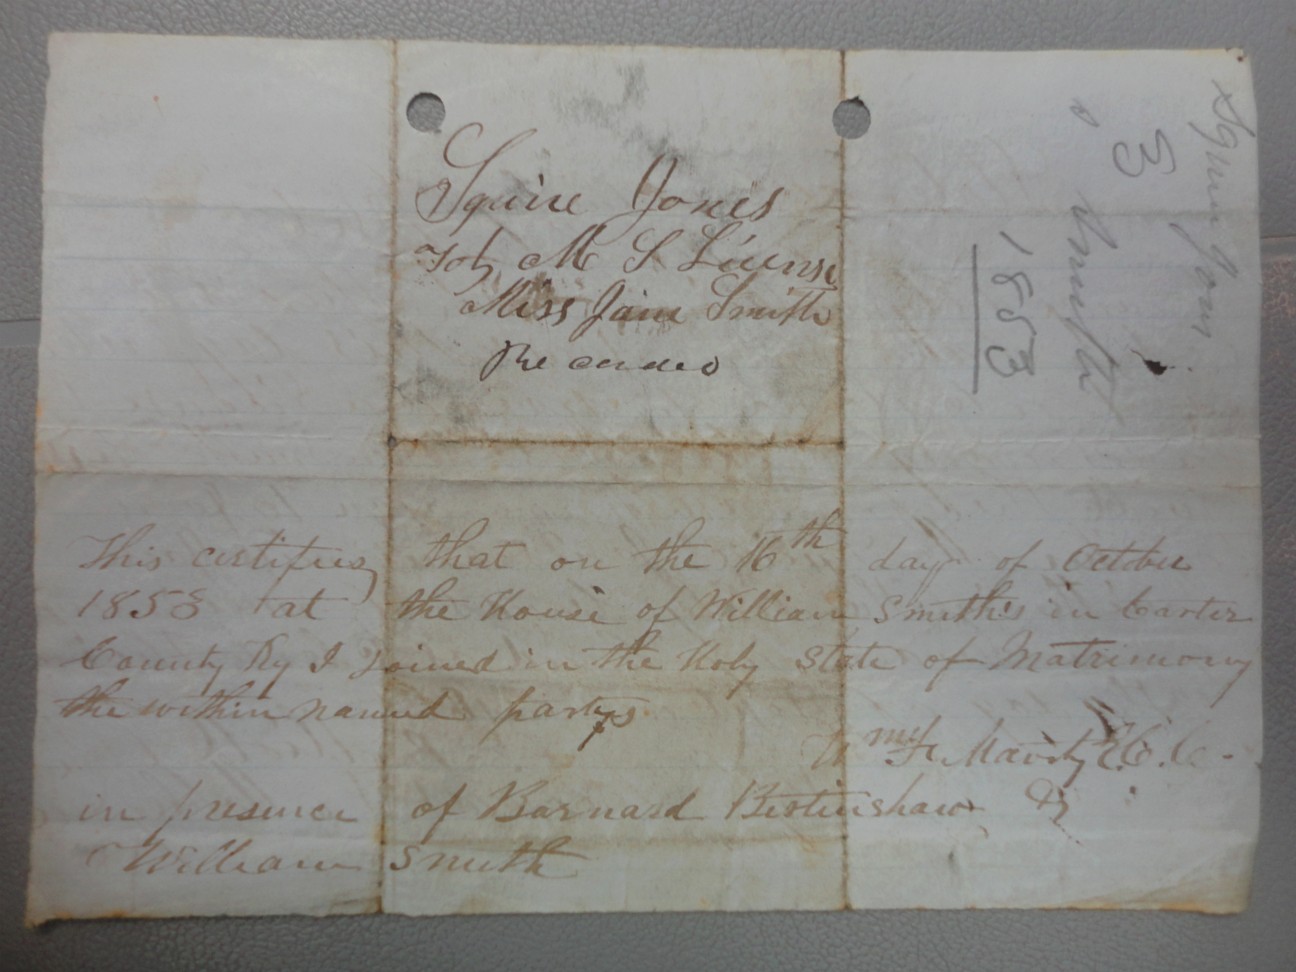 Squire Jones
To } M S Licens
Miss Jane Smith
Recorded
Squire Jones
&
Smith
1853
This certifies that on the 16th day of October
1853 at the House of William Smith's in Carter
County Ky I Joined in the Holy State of Matrimony
the within named partys
Wm
in presence of Barnard &
William Smith